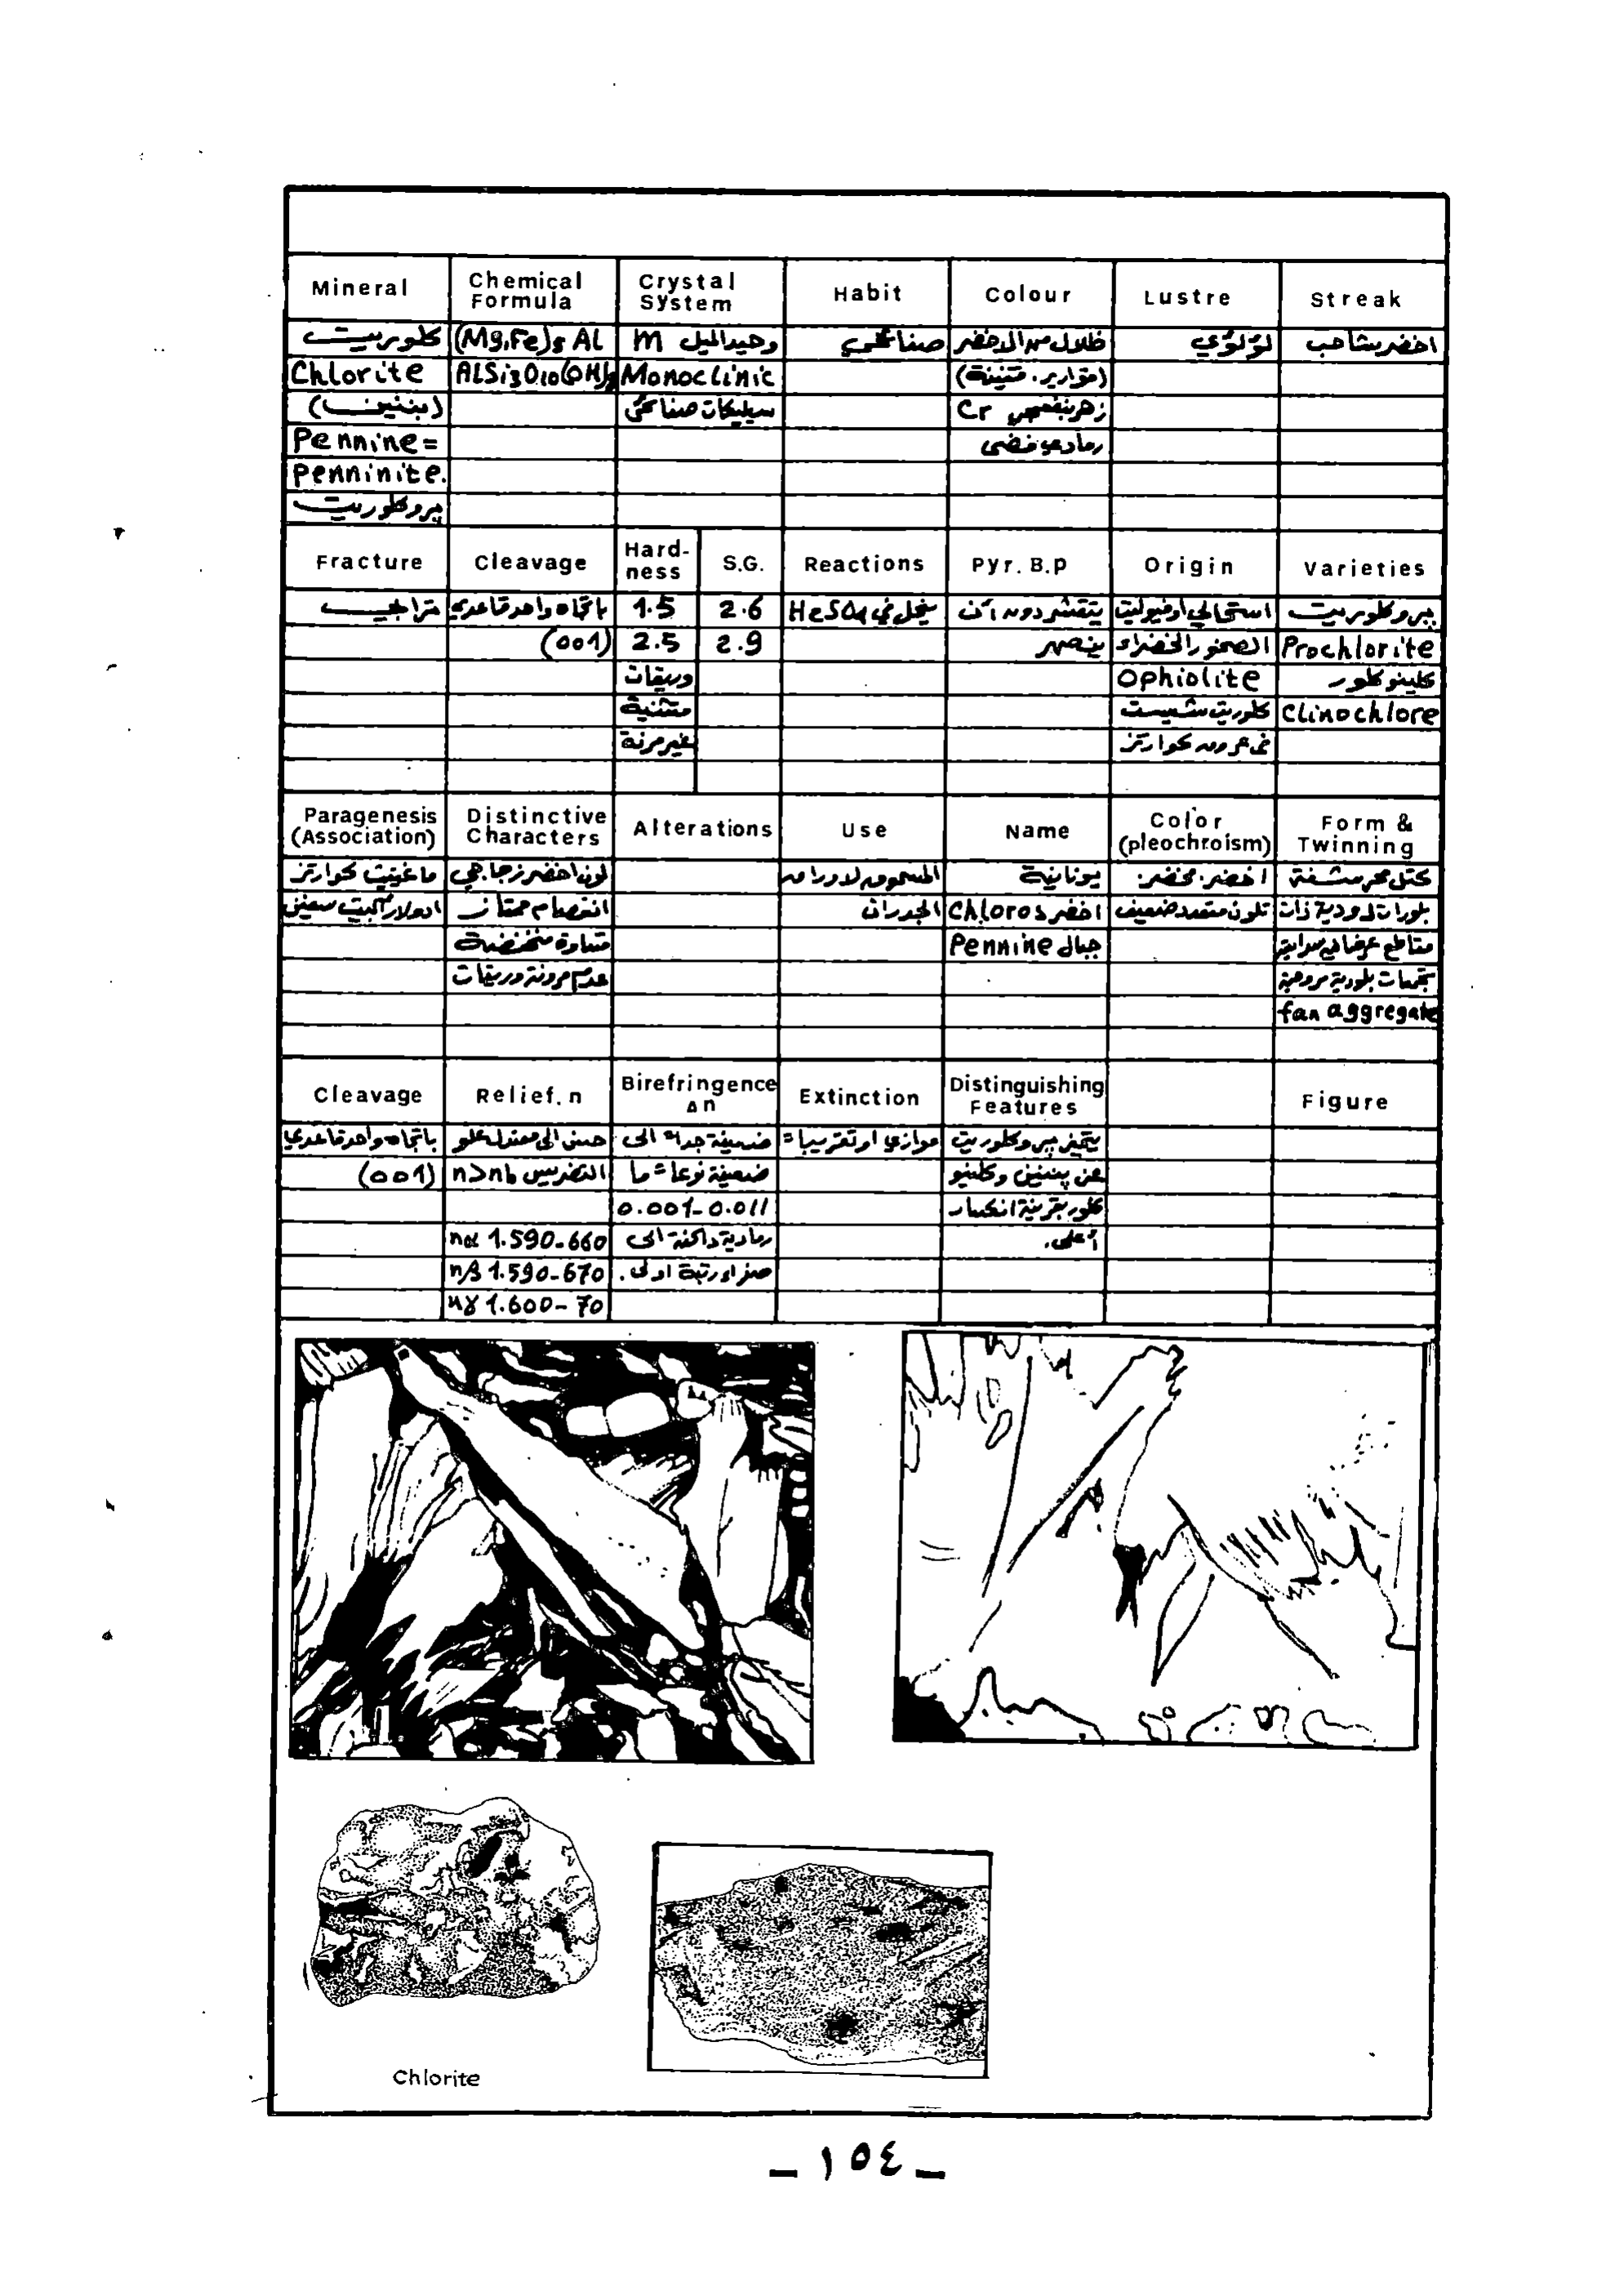 Mineral
Chemical Formula
Crystal System
Habit
Colour
Lustre
Streak
كلوريت
(Mg,Fe)5 Al
وحيد الميل m
صفائحي
ظلال من الاخضر
لؤلؤي
اخضر شاحب
Chlorite
AlSi3O10(OH)8
Monoclinic
(بننين)
سيليكات صفائحي
Cr
Pennine =
رمادي فضي
Penninite.
بروكلوريت
Fracture
Cleavage
Hard-ness
S.G.
Reactions
Pyr. B.p
Origin
Varieties
باتجاه واحد قاعدي
1.5
2.6
ينحل في HeSO4
يتقشر دون أن
استحالي اوفيوليت
بروكلوريت
(001)
2.5
2.9
ينصهر
الصخور الخضراء
Prochlorite
وريقات
Ophiolite
كلينوكلور
منثنية
كلوريت شيست
Clinochlore
غير مرنة
في عروق كوارتز
Paragenesis (Association)
Distinctive Characters
Alterations
Use
Name
Color (pleochroism)
Form & Twinning
لون اخضر زجاجي
يونانية
اخضر. مخضر.
انفصام ممتاز
الجدران
اخضر Chloros
تلون متعدد ضعيف
قساوة منخفضة
جبال Pennine
عدم مرونة وريقات
تجمعات بلورية مروحية
fan aggregate
Cleavage
Relief. n
Birefringence Δn
Extinction
Distinguishing Features
Figure
باتجاه واحد قاعدي
ضعيفة جداً الى
موازي او تقريباً =
يتميز بروكلوريت
(001)
التضريس n>nb
ضعيفة نوعاً ما
عن پننين وكلينو
0.001-0.011
كلور بقرينة انكسار
nα 1.590-660
رمادية داكنة الى
أعلى.
nβ 1.590-670
صفراء رتبة اولى.
nγ 1.600-70
Chlorite
- ١٥٤ -